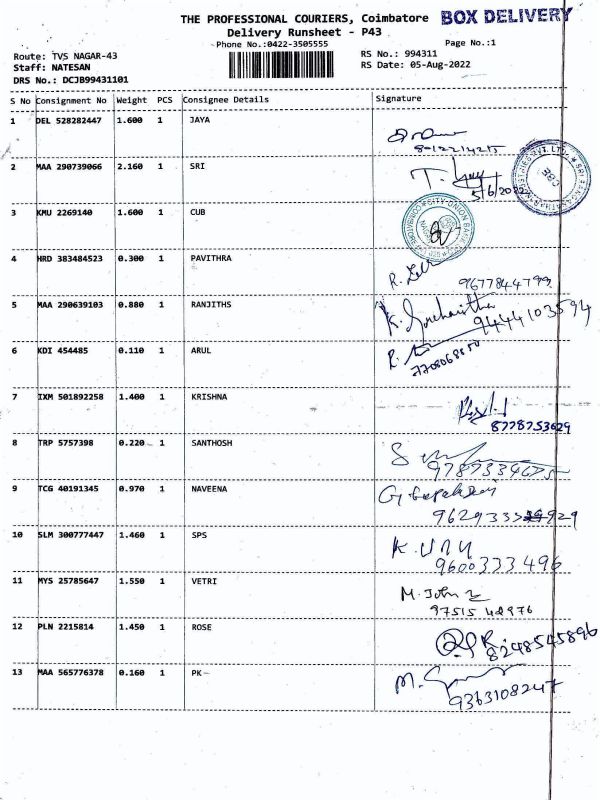 THE PROFESSIONAL COURIERS, Coimbatore BOX DELIVERY
Delivery Runsheet - P43
Phone No.:0422-3505555 Page No.:1
Route: TVS NAGAR-43 RS No.: 994311
Staff: NATESAN RS Date: 05-Aug-2022
DRS No.: DCJB99431101
S No Consignment No Weight PCS Consignee Details Signature
1 DEL 528282447 1.600 1 JAYA
2 MAA 290739066 2.160 1 SRI
5/6/2022
3 KMU 2269140 1.600 1 CUB
CITY UNION BANK
4 HRD 383484523 0.300 1 PAVITHRA
9677844799
5 MAA 290639103 0.880 1 RANJITHS
9444103594
6 KDI 454485 0.110 1 ARUL
7708068850
7 IXM 501892258 1.400 1 KRISHNA
8778753629
8 TRP 5757398 0.220 1 SANTHOSH
9787334675
9 TCG 40191345 0.970 1 NAVEENA
10 SLM 300777447 1.460 1 SPS
9600333496
11 MYS 25785647 1.550 1 VETRI
M. John
97515 42976
12 PLN 2215814 1.450 1 ROSE
8248545896
13 MAA 565776378 0.160 1 PK
9363108247